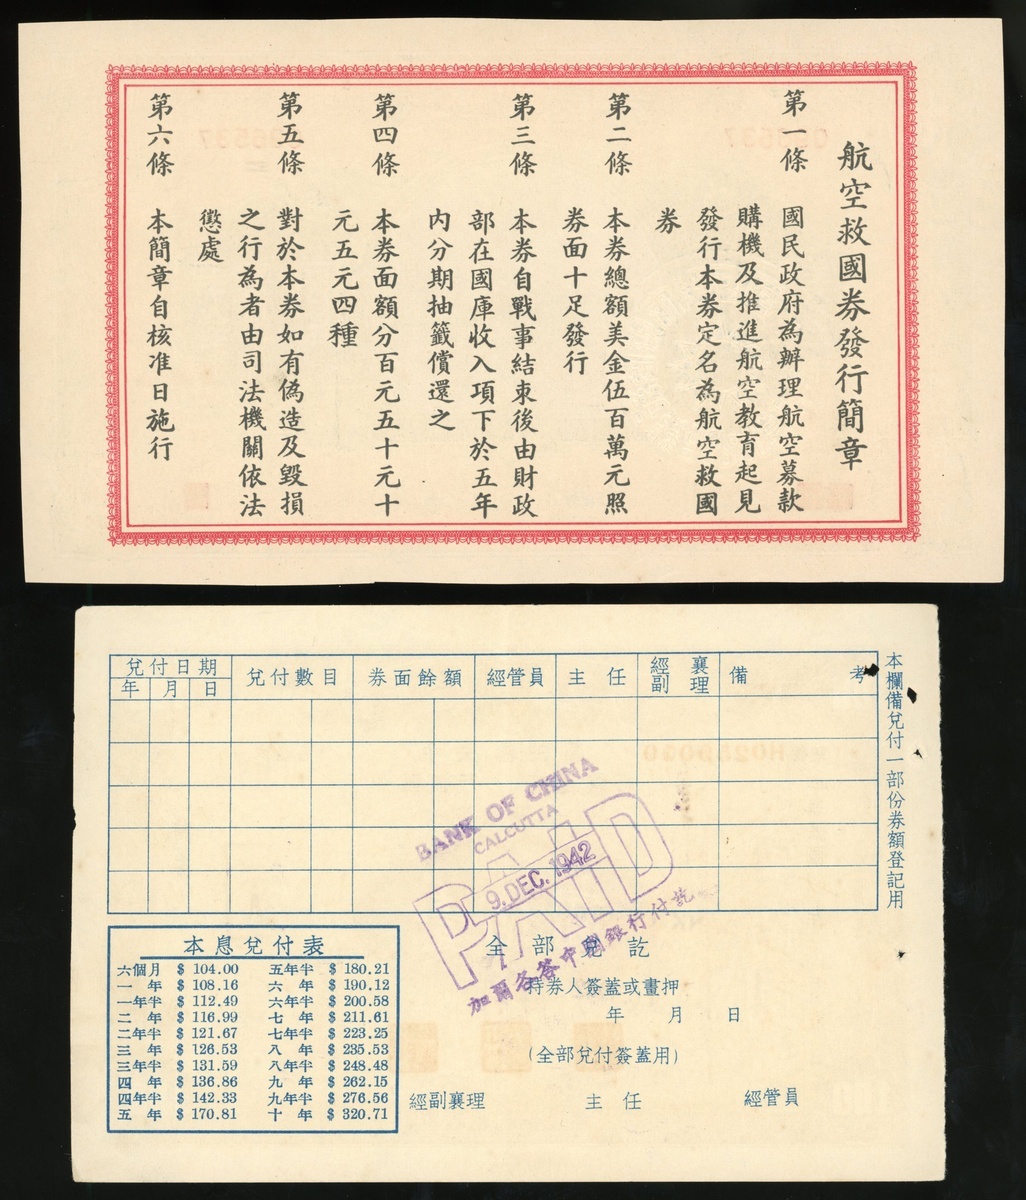 航空救國券發行簡章
第一條 國民政府為辦理航空募款
購機及推進航空教育起見
發行本券定名為航空救國
券
第二條 本券總額美金伍百萬元照
券面十足發行
第三條 本券自戰事結束後由財政
部在國庫收入項下於五年
內分期抽籤償還之
第四條 本券面額分百元五十元十
元五元四種
第五條 對於本券如有偽造及毀損
之行為者由司法機關依法
懲處
第六條 本簡章自核准日施行
本欄備兌付一部份券額登記用
兌付日期 兌付數目 券面餘額 經管員 主任 經副襄理 備考
年 月 日
H025000
BANK OF CHINA
CALCUTTA
PAID
9.DEC.1942
加爾各答中國銀行付訖
本息兌付表
六個月 $ 104.00 五年半 $ 180.21
一年 $ 108.16 六年 $ 190.12
一年半 $ 112.49 六年半 $ 200.58
二年 $ 116.99 七年 $ 211.61
二年半 $ 121.67 七年半 $ 223.25
三年 $ 126.53 八年 $ 235.53
三年半 $ 131.59 八年半 $ 248.48
四年 $ 136.86 九年 $ 262.15
四年半 $ 142.33 九年半 $ 276.56
五年 $ 170.81 十年 $ 320.71
全部兌訖
持券人簽蓋或畫押
年 月 日
(全部兌付簽蓋用)
經副襄理 主任 經管員